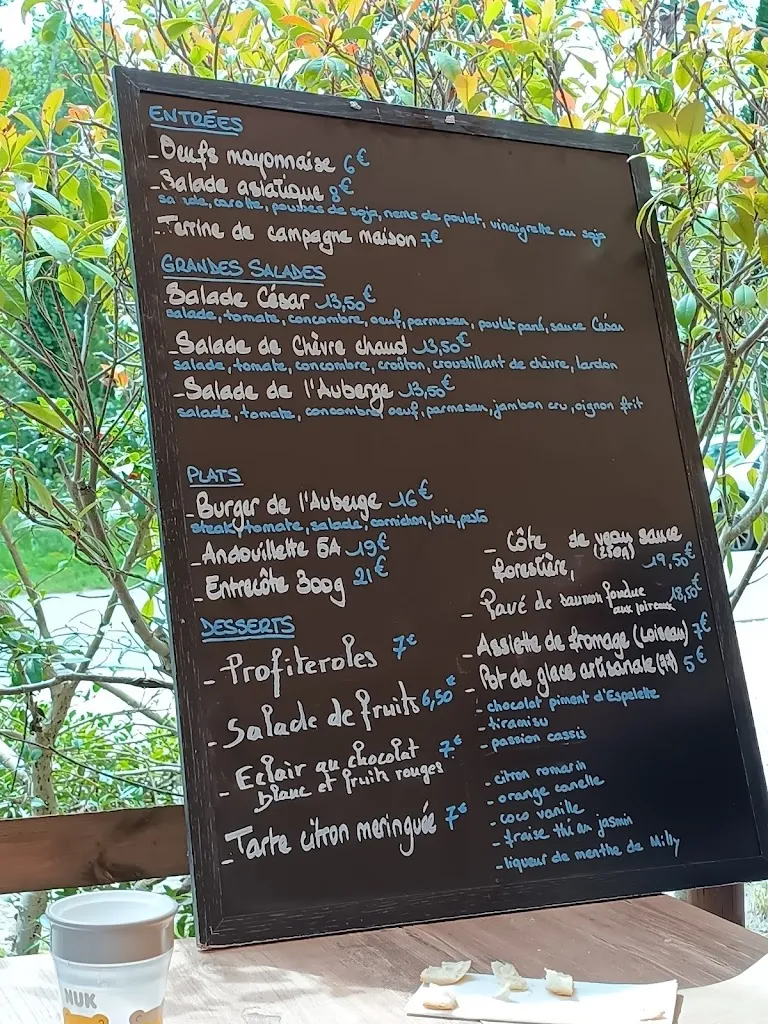 ENTRÉES
- Oeufs mayonnaise 6€
- Salade asiatique 8€
salade, carotte, pousses de soja, nems de poulet, vinaigrette au soja
- Terrine de campagne maison 7€
GRANDES SALADES
Salade César 13,50€
salade, tomate, concombre, oeuf, parmesan, poulet pané, sauce César
- Salade de Chèvre chaud 13,50€
salade, tomate, concombre, croûton, croustillant de chèvre, lardon
- Salade de l'Auberge 13,50€
salade, tomate, concombre, oeuf, parmesan, jambon cru, oignon frit
PLATS
- Burger de l'Auberge 16€
steak, tomate, salade, cornichon, brie, pesto
- Andouillette 5A 19€
- Entrecôte 300g 21€
- Côte de veau sauce
forestière, 19,50€
- Pavé de saumon fondue
aux poireaux 18,50€
DESSERTS
- Profiteroles 7€
- Salade de fruits 6,50€
- Eclair au chocolat
blanc et fruits rouges 7€
- Tarte citron meringuée 7€
- Assiette de fromage (Loiseau) 7€
- Pot de glace artisanale 5€
- chocolat piment d'Espelette
- tiramisu
- passion cassis
- citron romarin
- orange canelle
- coco vanille
- fraise thé au jasmin
- liqueur de menthe de Milly
NUK